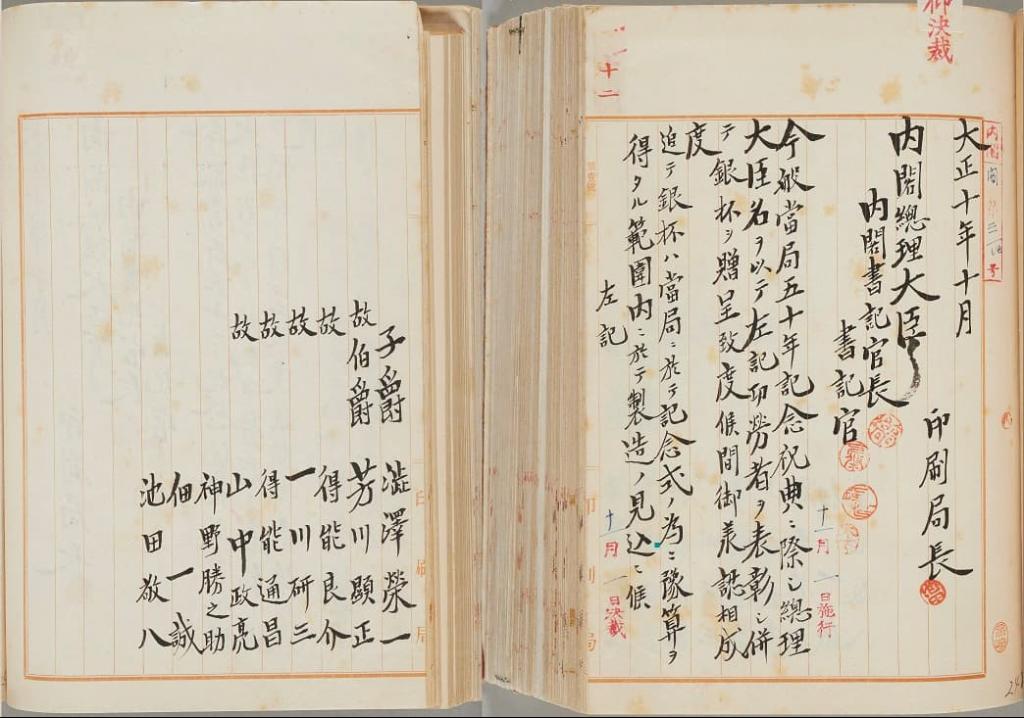 御決裁
大正十年十月
印刷局長
内閣總理大臣
内閣書記官長
書記官
十一月一日施行
今般當局五十年記念祝典ニ際シ總理
大臣名ヲ以テ左記功勞者ヲ表彰シ併
テ銀杯ヲ贈呈致度候間御承認相成
度
追テ銀杯ハ當局ニ於テ記念式ノ為ニ豫算ヲ
得タル範圍内ニ於テ製造ノ見込ニ候
左記
十一月一日決裁
十二
印刷局
子爵 澁澤榮一
故伯爵 芳川顯正
故 得能良介
故 一川研三
故 得能通昌
故 山中政亮
神野勝之助
佃一誠
池田敬八
印刷局